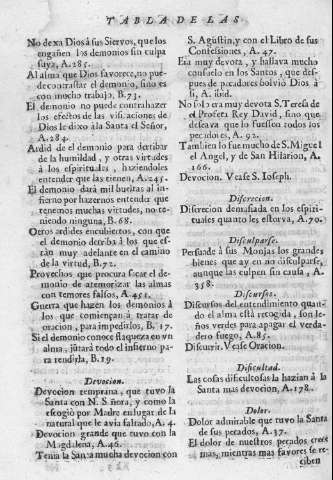 TABLA DE LAS
No dexa Dios à sus Siervos, que los
engañen los demonios sin culpa
suya, A. 285.
Al alma que Dios favorece, no pue-
de contrastar el demonio, sino es
con mucho trabajo, B. 73.
El demonio no puede contrahazer
los efectos de las visitaciones de
Dios le dixo à la Santa el Señor,
A. 284.
Ardid de el demonio para derribar
de la humildad, y otras virtudes
à los espirituales, haziendoles
entender que las tienen, A. 245.
El demonio dará mil bueltas al in-
fierno por hazernos entender que
tenemos muchas virtudes, no te-
niendo ninguna, B. 68.
Otros ardides encubiertos, con que
el demonio derriba à los que es-
tàn muy adelante en el camino
de la virtud, B. 72.
Provechos que procura sacar el de-
monio de atemorizar las almas
con temores falsos, A. 451.
Guerra que hazen los demonios à
los que comiençan à tratar de
oracion, para impedirlos, B. 17.
Si el demonio conoce flaqueza en vn
alma, juntarà todo el infierno pa-
ra rendirla, B. 19.
Devocion.
Devocion temprana, que tuvo la
Santa con N. Señora, y como la
escogiò por Madre en lugar de la
natural que le avia faltado, A. 4.
Devocion grande que tuvo con la
Magdalena, A. 46.
Tenia la Santa mucha devocion con
S. Agustin, y con el Libro de sus
Confessiones, A. 47.
Era muy devota, y hallava mucho
consuelo en los Santos, que des-
pues de pecadores bolviò Dios à
sì, A. ibid.
No solo era muy devota S. Teresa de
el Profeta Rey David, sino que
deseava que lo fuessen todos los
pecadores, A. 92.
Tambien lo fue mucho de S. Miguel
el Angel, y de San Hilarion, A.
166.
Devocion. Vease S. Ioseph.
Discrecion.
Discrecion demasiada en los espiri-
tuales quanto les estorva, A. 70.
Disculparse.
Persuade à sus Monjas los grandes
bienes que ay en no disculparse,
aunque las culpen sin causa, A.
358.
Discursos.
Discursos del entendimiento quan-
do el alma està recogida, son le-
ños verdes para apagar el verda-
dero fuego, A. 85.
Discurrir. Vease Oracion.
Dificultad.
Las cosas dificultosas la hazian à la
Santa mas devocion, A. 178.
Dolor.
Dolor admirable que tuvo la Santa
de sus pecados, A. 37.
El dolor de nuestros pecados crece
mas, mientras mas favores se re-
ciben